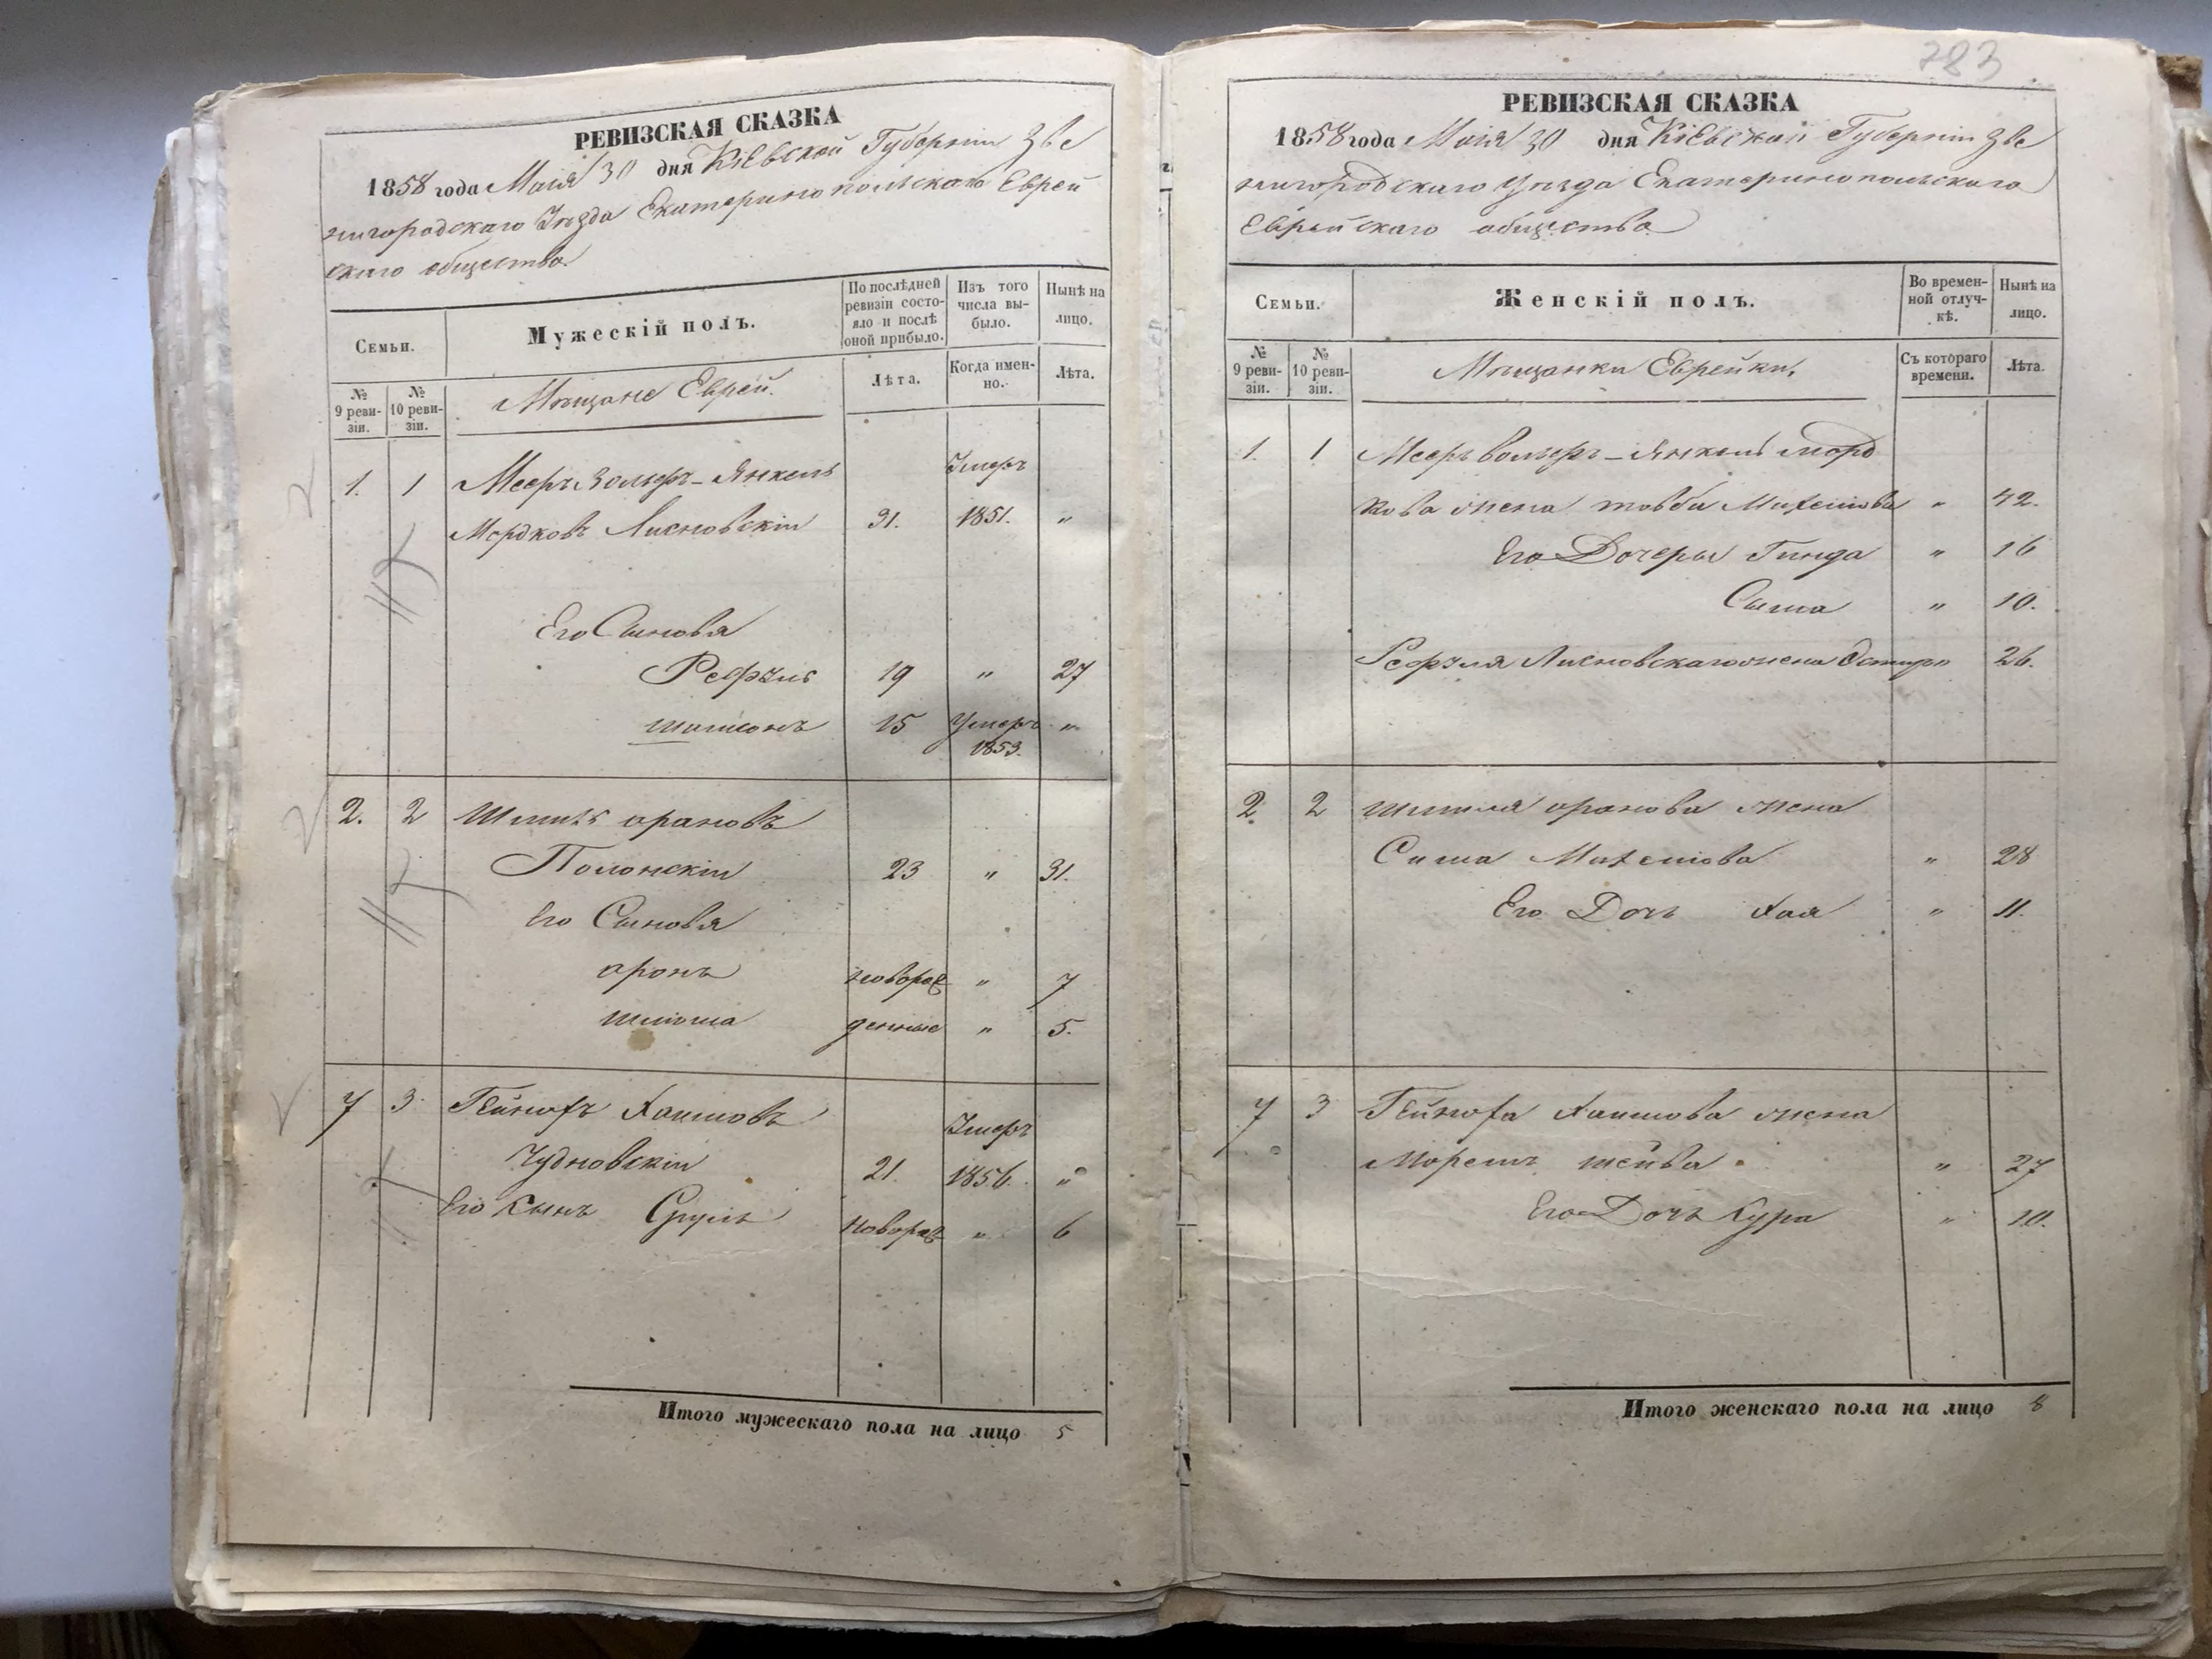 РЕВИЗСКАЯ СКАЗКА
1858 года Маія 30 дня Кіевской Губерніи Зве
нигородскаго Уѣзда Екатеринопольскаго Еврей
скаго общества.
Семьи.
Мужескій полъ.
По послѣдней ревизіи состояло и послѣ оной прибыло.
Изъ того числа выбыло.
Нынѣ на лицо.
№ 9 ревизіи.
№ 10 ревизіи.
Мѣщане Евреи.
Лѣта.
Когда именно.
Лѣта.
1. 1 Мееръ Вольфъ-Янкель Умеръ
Мордковъ Лисновскій 31. 1851. "
Его Сыновья
Рефуль 19 " 27
Шамсонъ 15 Умеръ "
1853.
2. 2 Шмиль ароновъ
Полонскій 23 " 31.
Его Сыновья
аронъ новорож " 7
Шлиома денные " 5.
7 3 Гейнохъ Хаимовъ Умеръ
Чудновскій 21. 1856. "
Его сынъ Сруль новорож " 6
Итого мужескаго пола на лицо 5
783
РЕВИЗСКАЯ СКАЗКА
1858 года Маія 30 дня Кіевской Губерніи Зве
нигородскаго Уѣзда Екатеринопольскаго
Еврейскаго общества
Семьи.
Женскій полъ.
Во временной отлучкѣ.
Нынѣ на лицо.
№ 9 ревизіи.
№ 10 ревизіи.
Мѣщанки Еврейки,
Съ котораго времени.
Лѣта.
1. 1 Меера Вольфа-Янкеля Морд
кова жена товба " 42.
Его Дочеры Гинда " 16
Сима " 10.
Рефуля Лисновскаго жена Эстиръ 26.
2 2 Шмиля аронова жена
Сима " 28
Его Дочь Хая " 11.
7 3 Гейноха Хаимова жена
шейва " 27
Его Дочь Сура " 10.
Итого женскаго пола на лицо 8